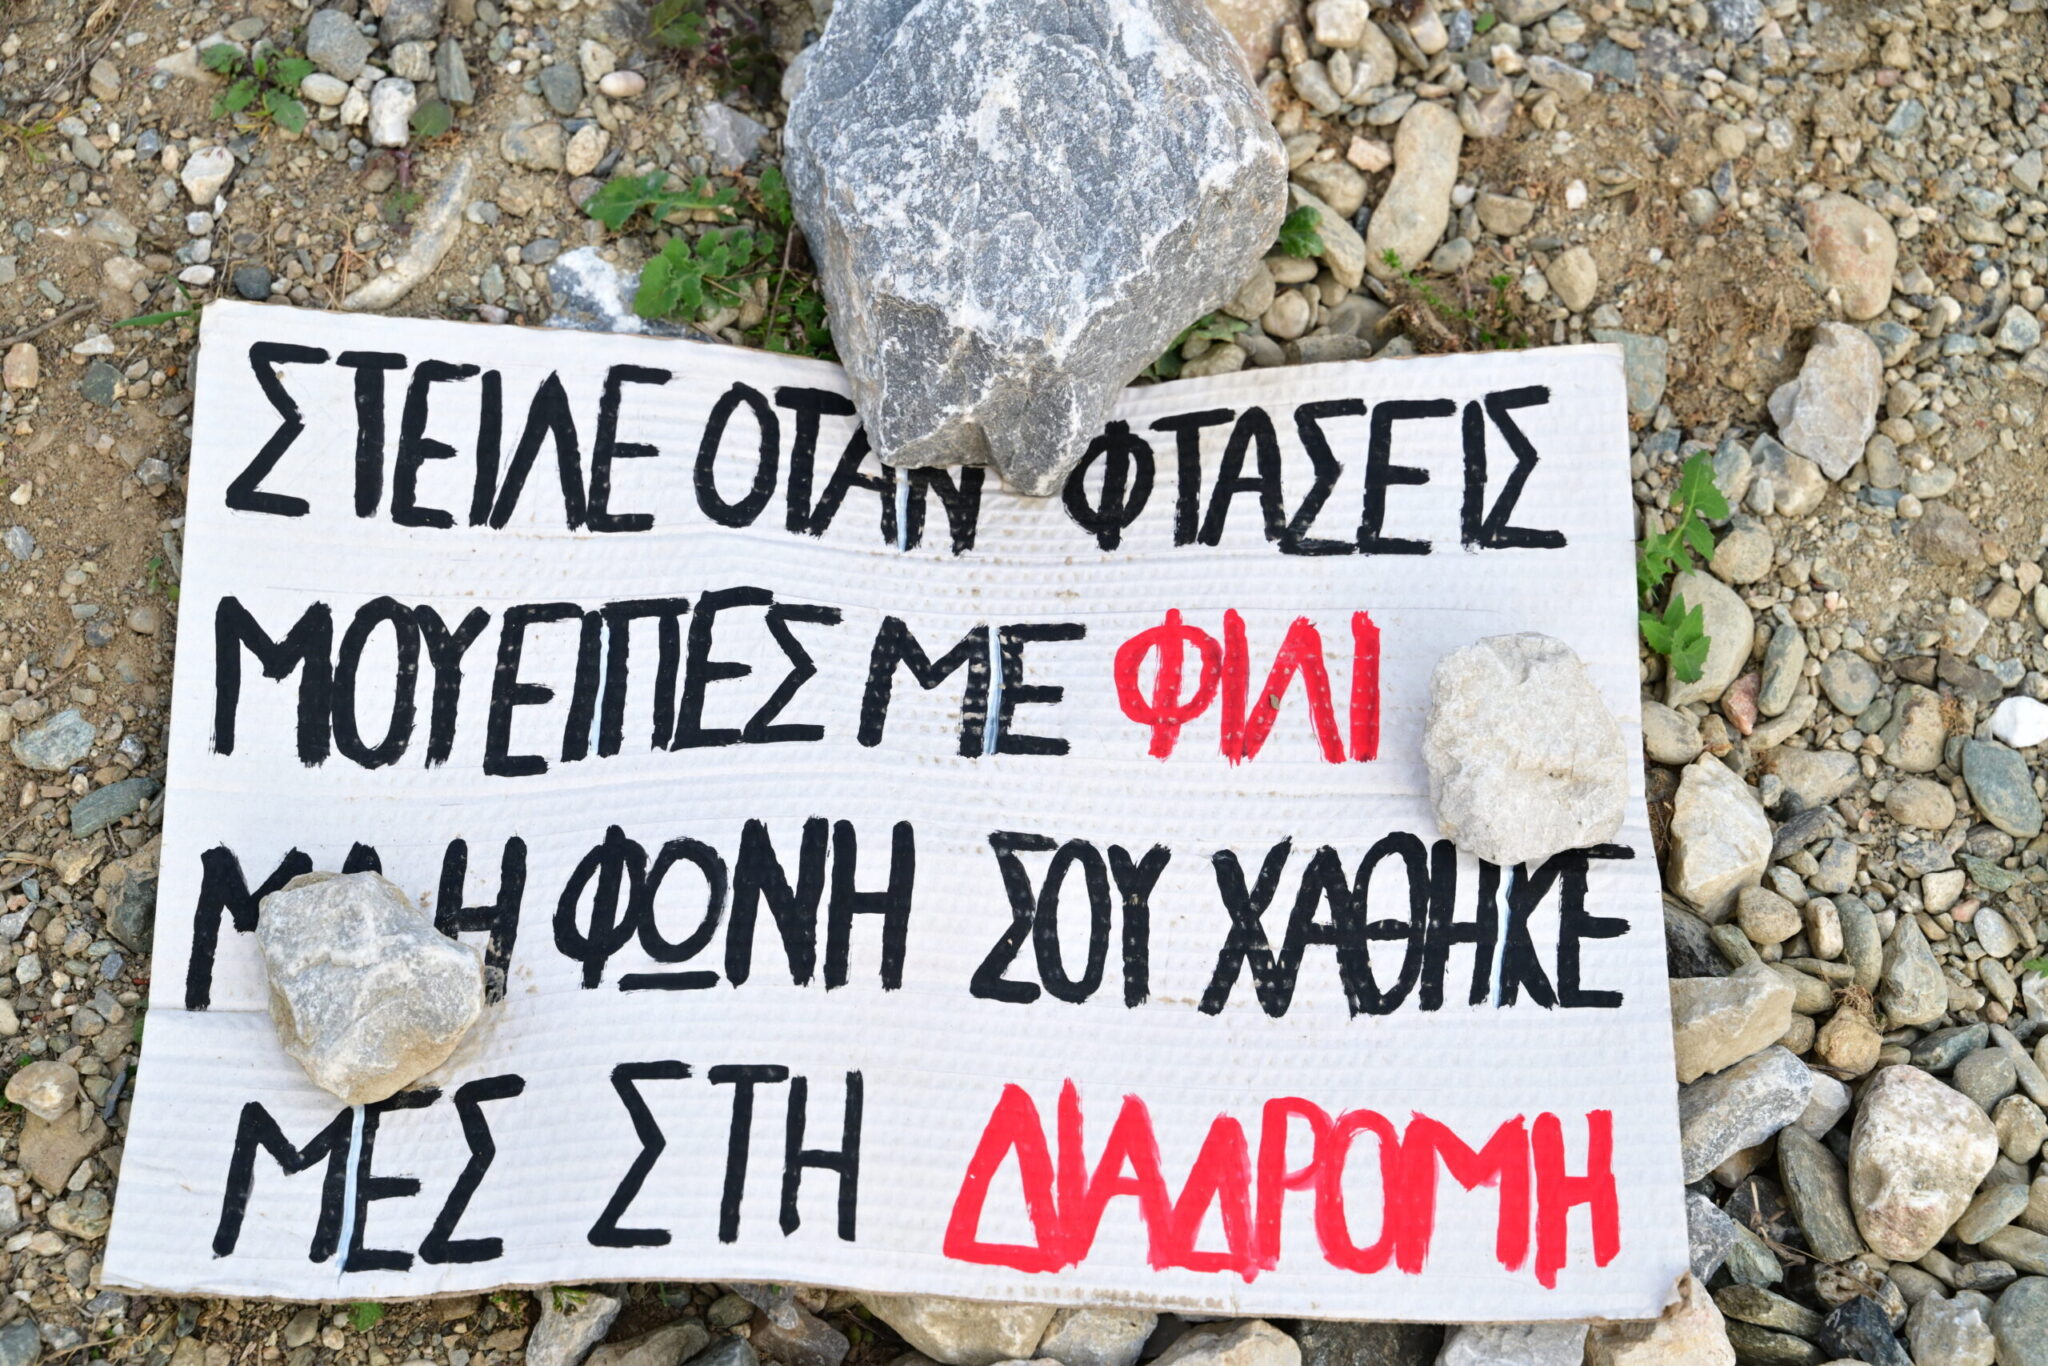 ΣΤΕΙΛΕ ΟΤΑΝ ΦΤΑΣΕΙΣ
ΜΟΥ ΕΙΠΕΣ ΜΕ ΦΙΛΙ
ΜΑ Η ΦΩΝΗ ΣΟΥ ΧΑΘΗΚΕ
ΜΕΣ ΣΤΗ ΔΙΑΔΡΟΜΗ